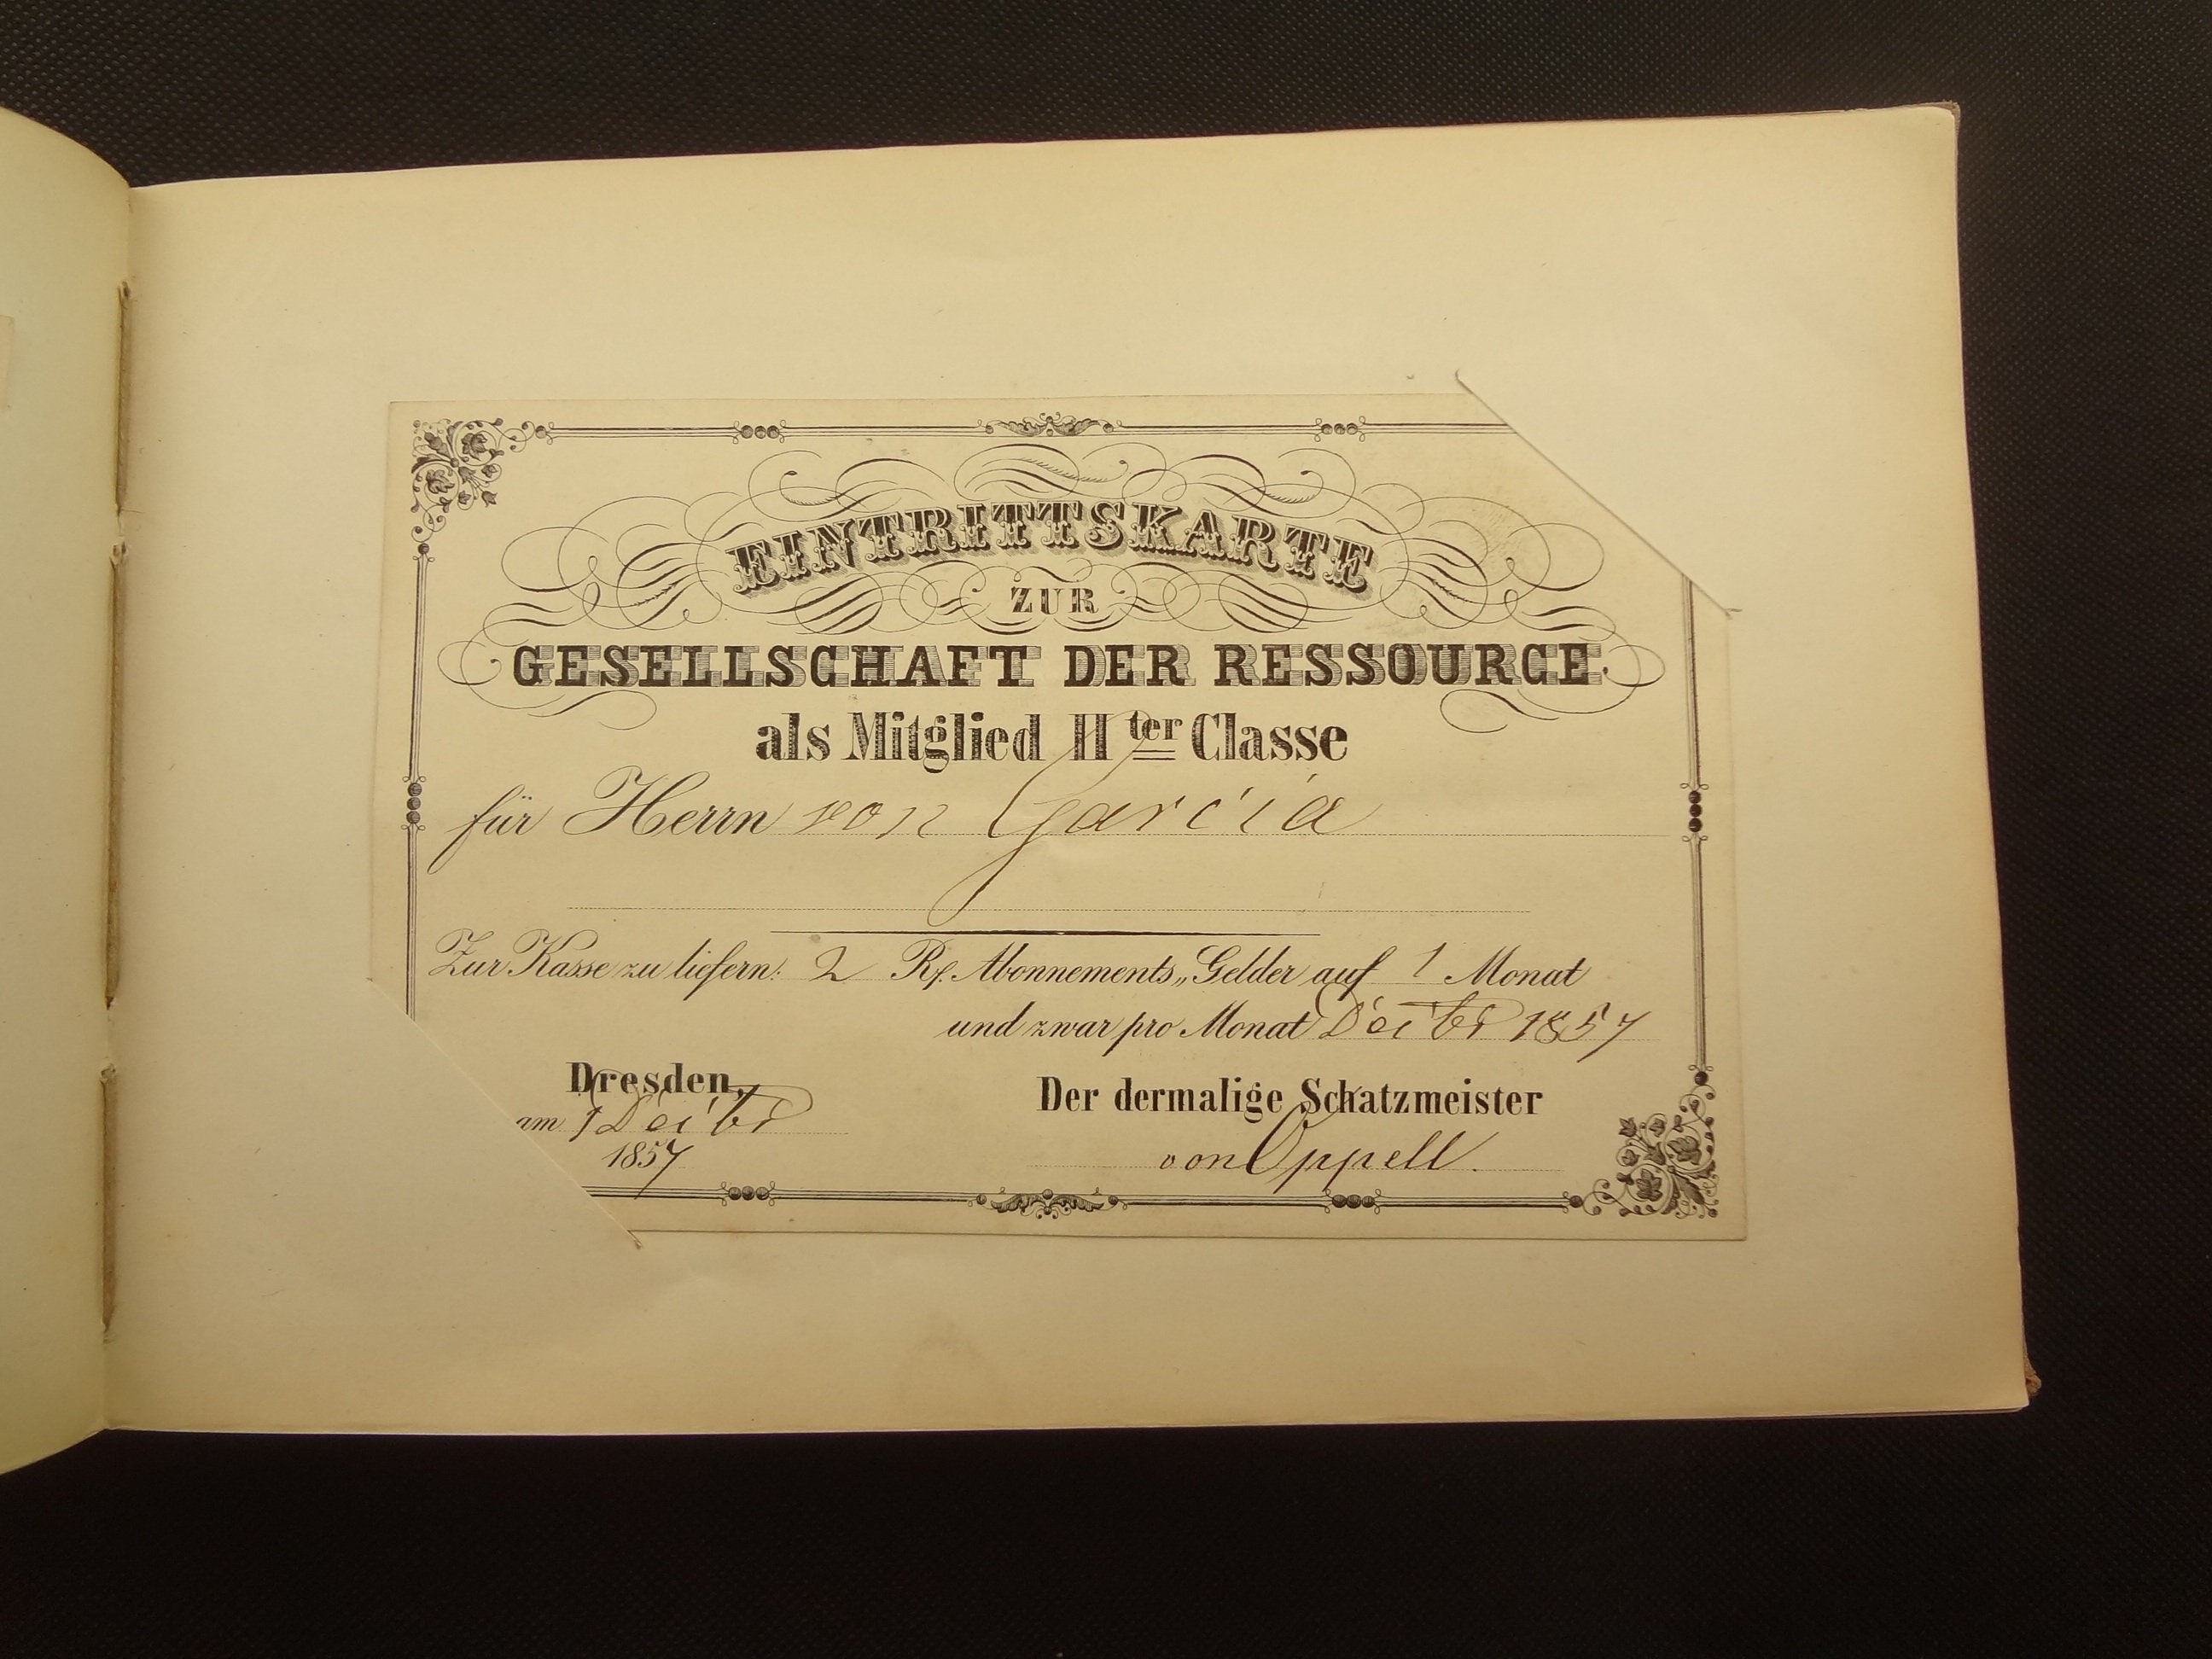 EINTRITTSKARTE
ZUR
GESELLSCHAFT DER RESSOURCE
als Mitglied IIter Classe
für Herrn von Garcia
Zur Kasse zu liefern: 2 Rf. Abonnements„Gelder auf 1 Monat
und zwar pro Monat Decbr 1857
Dresden,
am 1 Decbr
1857
Der dermalige Schatzmeister
von Oppell.